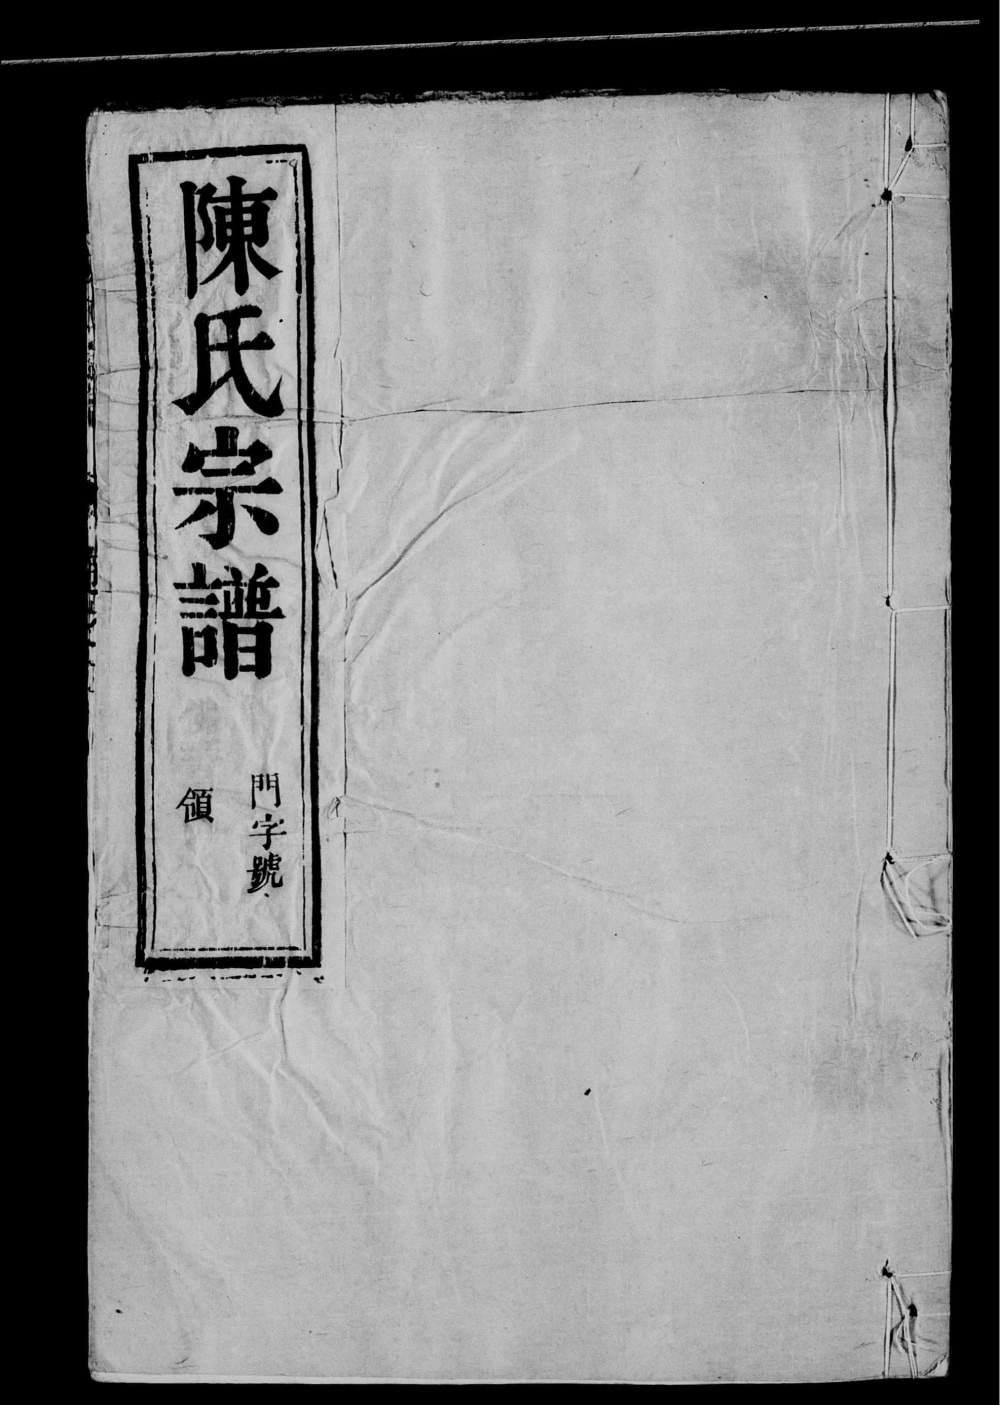 陳氏宗譜
門字號
領